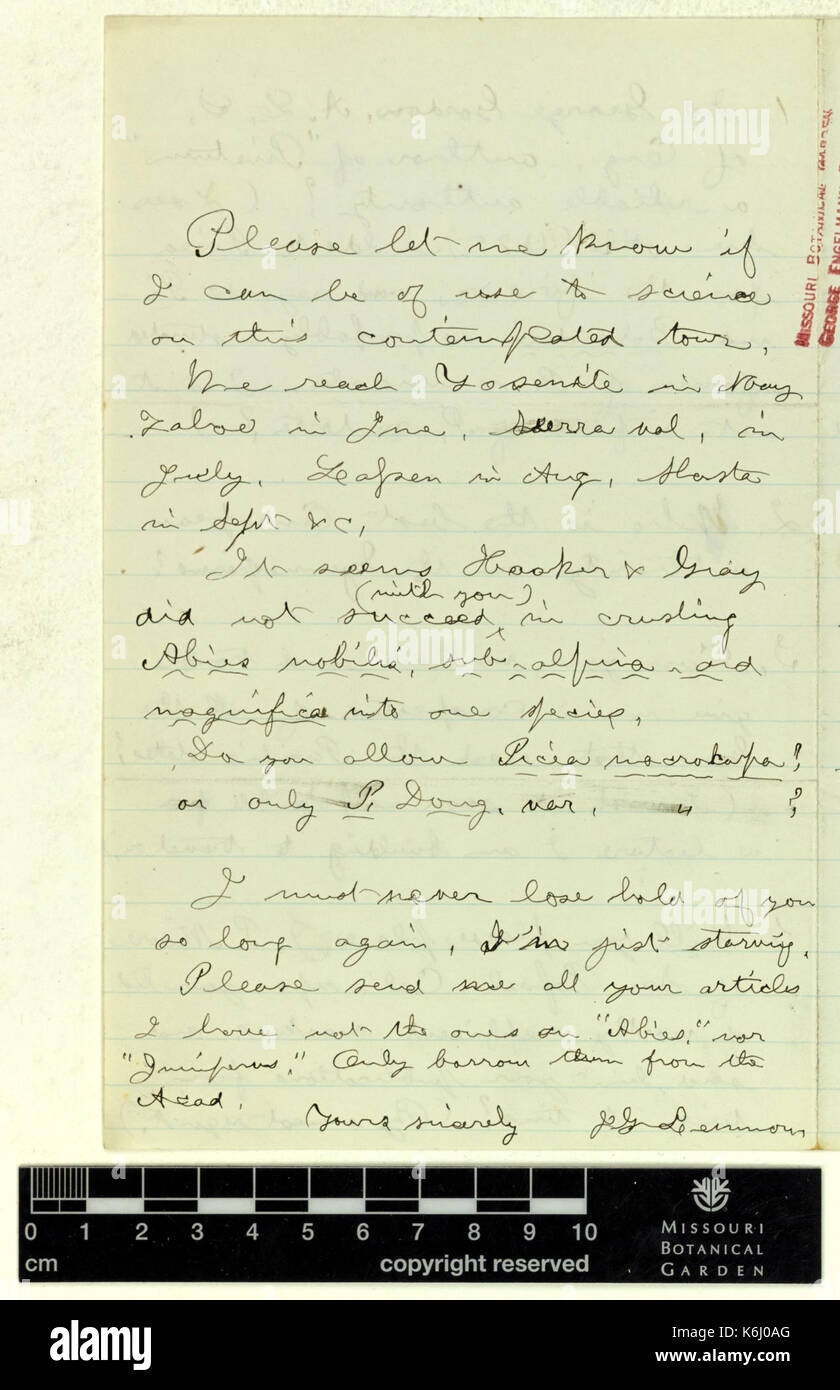 Please let me know if
I can be of use to science
on this contemplated tour.
We reach Yosemite in May
Tahoe in June, Sierra val, in
July, Lassen in Aug, Shasta
in Sept &c,
It seems Hooker & Gray
(with you)
did not succeed in crushing
Abies nobilis, sub-alpina and
magnifica into one species,
Do you allow Picea macrocarpa?
or only P. Doug. var. " ?
I must never lose hold of you
so long again, I'm just starving.
Please send me all your articles
I have not the ones on "Abies," nor
"Juniperus." Only borrow them from the
Acad.
Yours sincerely JG Lemmon
MISSOURI BOTANICAL GARDEN
GEORGE ENGELMANN
0 1 2 3 4 5 6 7 8 9 10
cm copyright reserved
MISSOURI
BOTANICAL
GARDEN
alamy
Image ID: K6J0AG
www.alamy.com